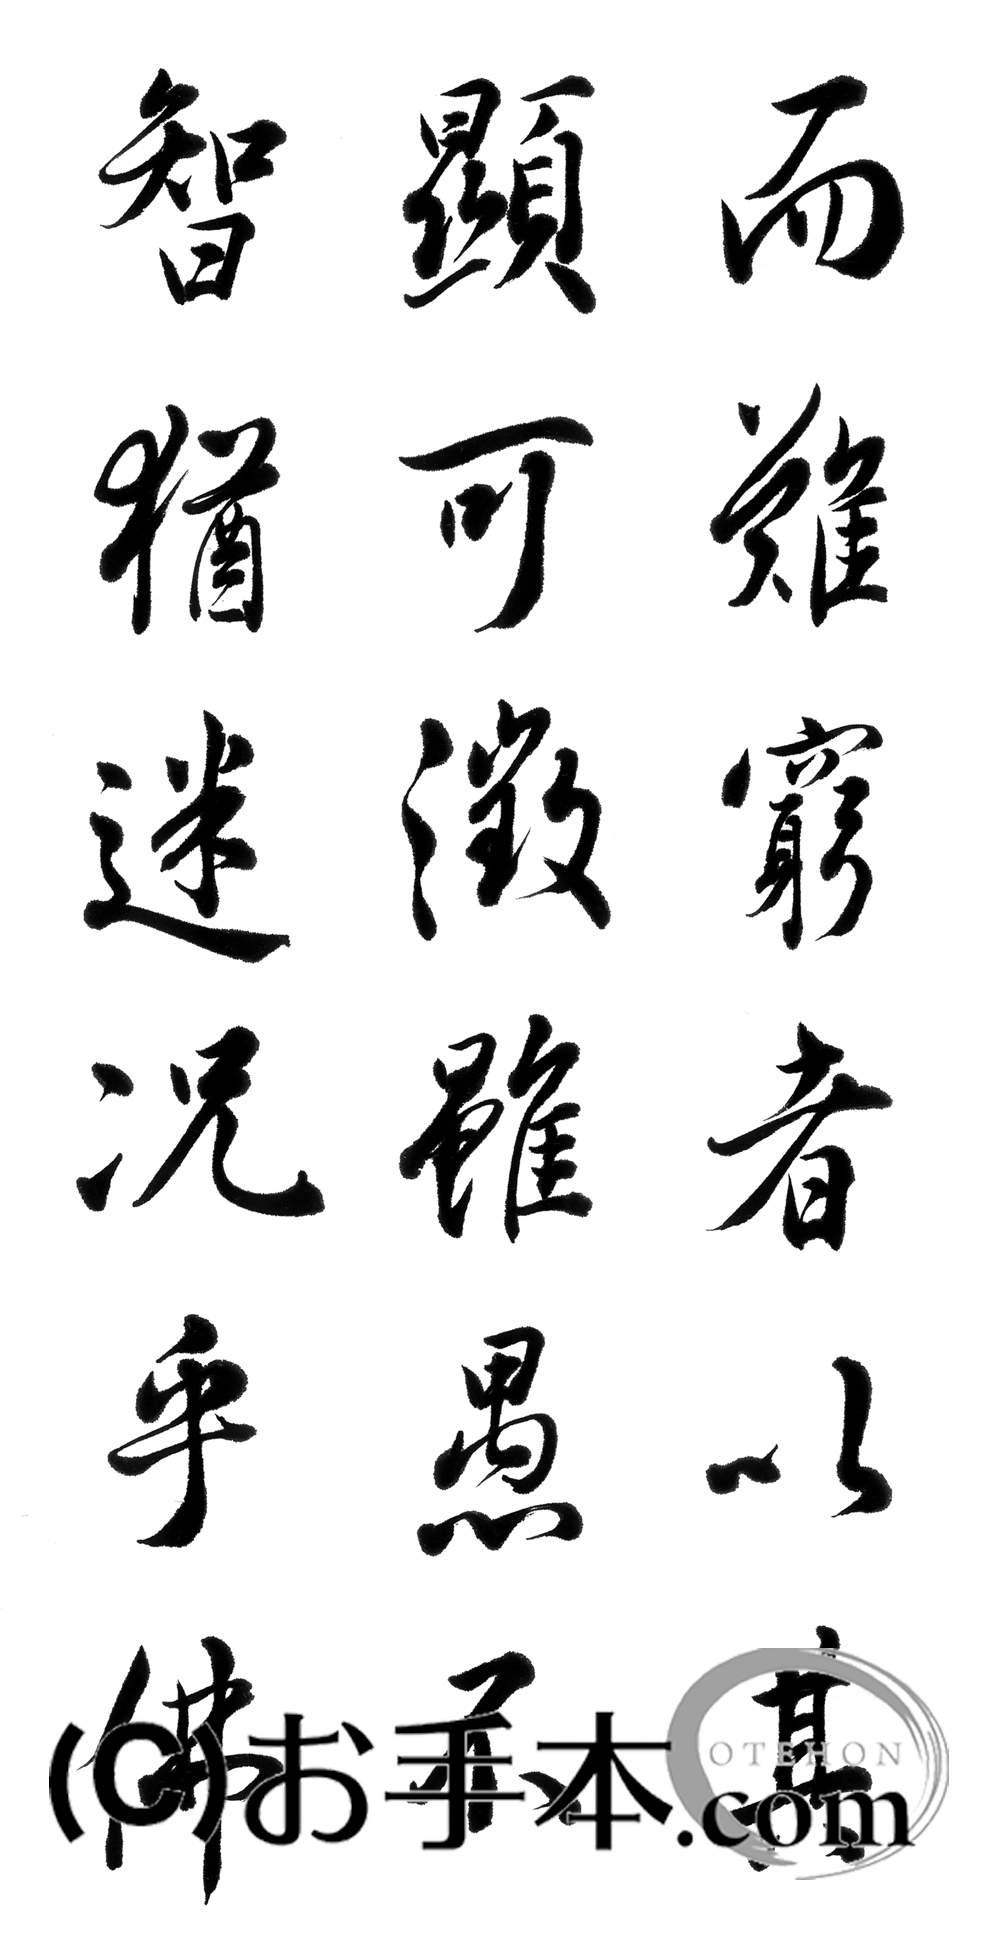 而難窮者以其
顯可徵雖愚不
智猶迷况乎佛
(C)お手本.com
OTEHON